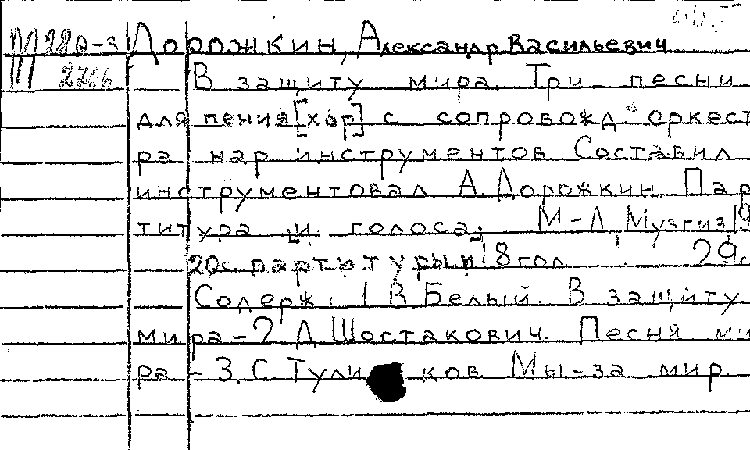 М 220-3 Дорожкин, Александр Васильевич
2766 В защиту мира. Три песни
для пения [хор] с сопровожд. оркест
ра нар инструментов Составил
инструментовал А. Дорожкин. Пар
титура и голоса. М-Л Музгиз 19
20с. партитуры, 8 гол 29с
Содерж: 1 В Белый. В защиту
мира - 2 Д Шостакович. Песня ми
ра - 3. С Тули ков Мы - за мир.